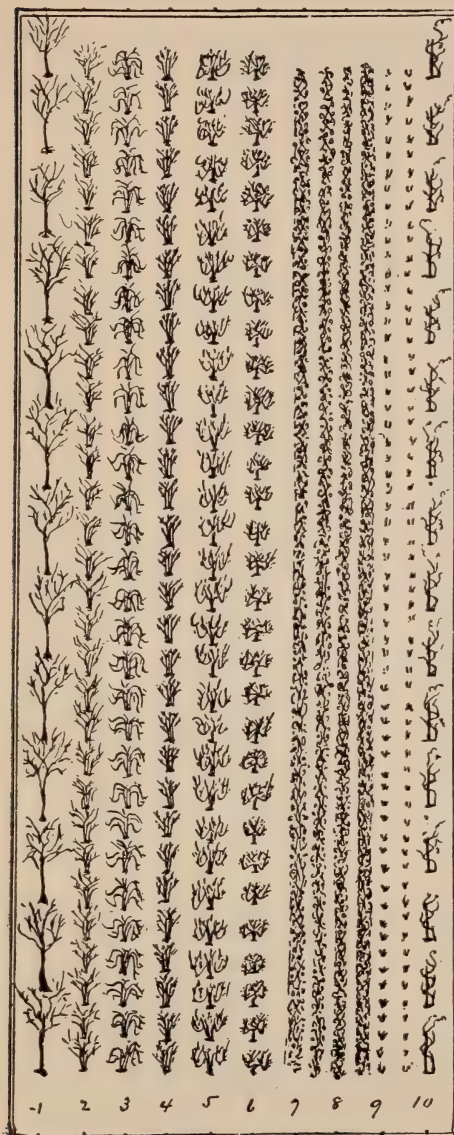 1 2 3 4 5 6 7 8 9 10